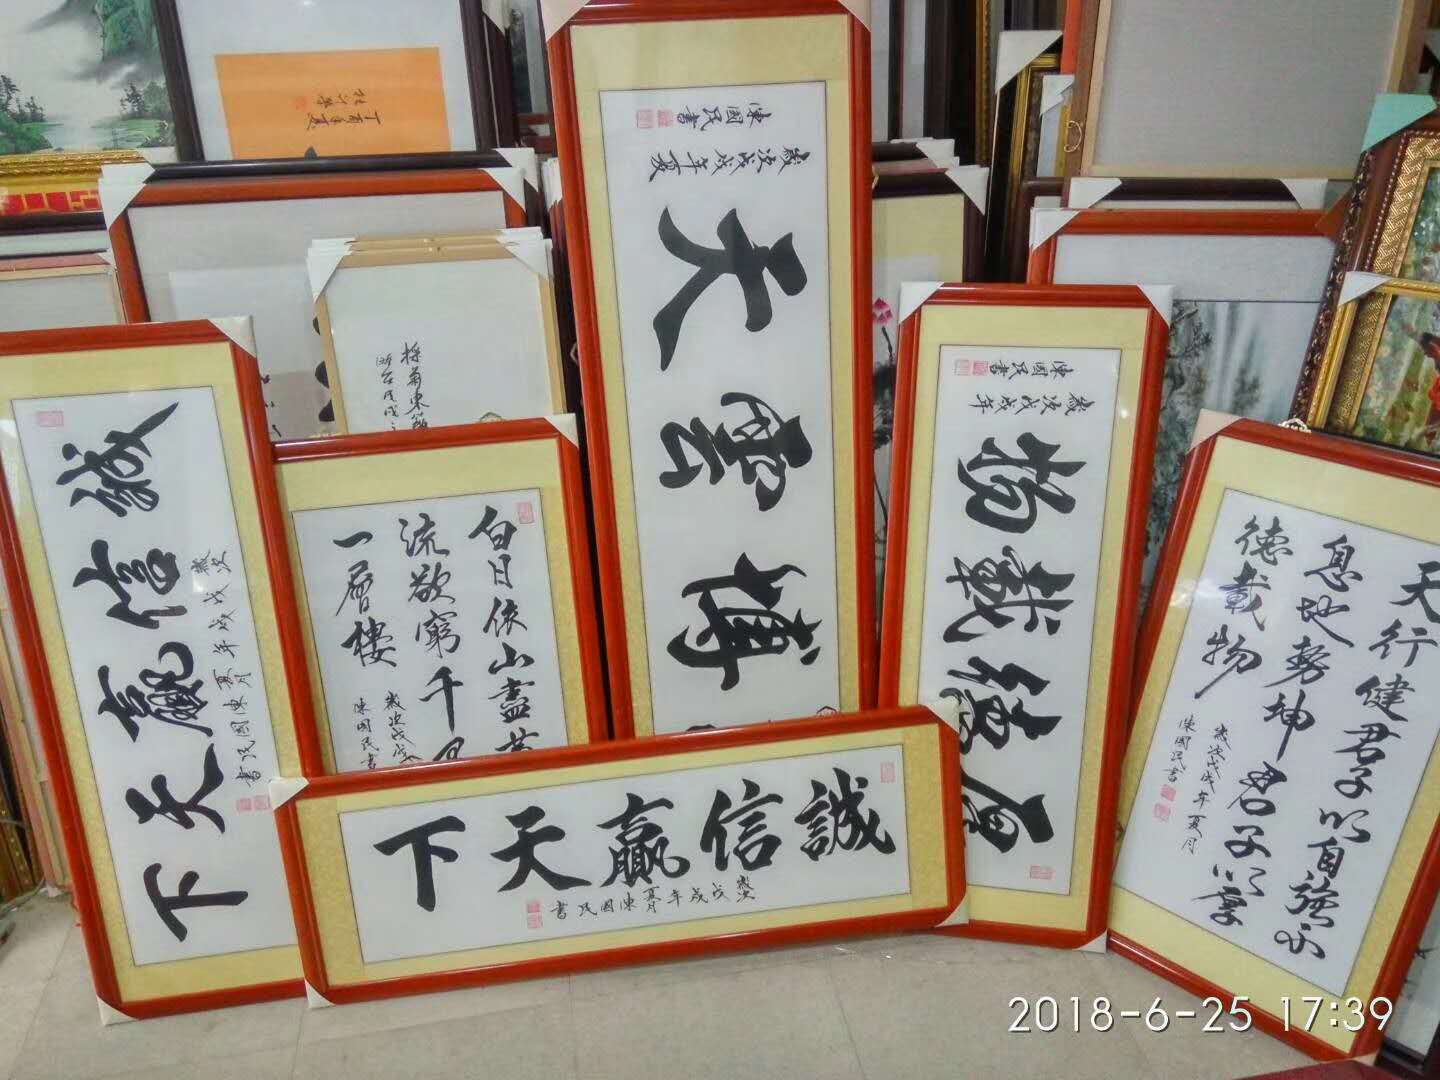 丁酉年夏
採菊東籬
陳國民書
歲次戊戌年夏
天雲博
陳國民書
歲次戊戌年
物載德厚
誠信贏天下
歲次戊戌年夏月陳國民書
白日依山盡黃
流欲窮千里
一層樓
歲次戊戌
陳國民書
誠信贏天下
歲次戊戌年夏月陳國民書
天行健君子以自強不
息地勢坤君子以厚
德載物
歲次戊戌年夏月
陳國民書
2018-6-25 17:39